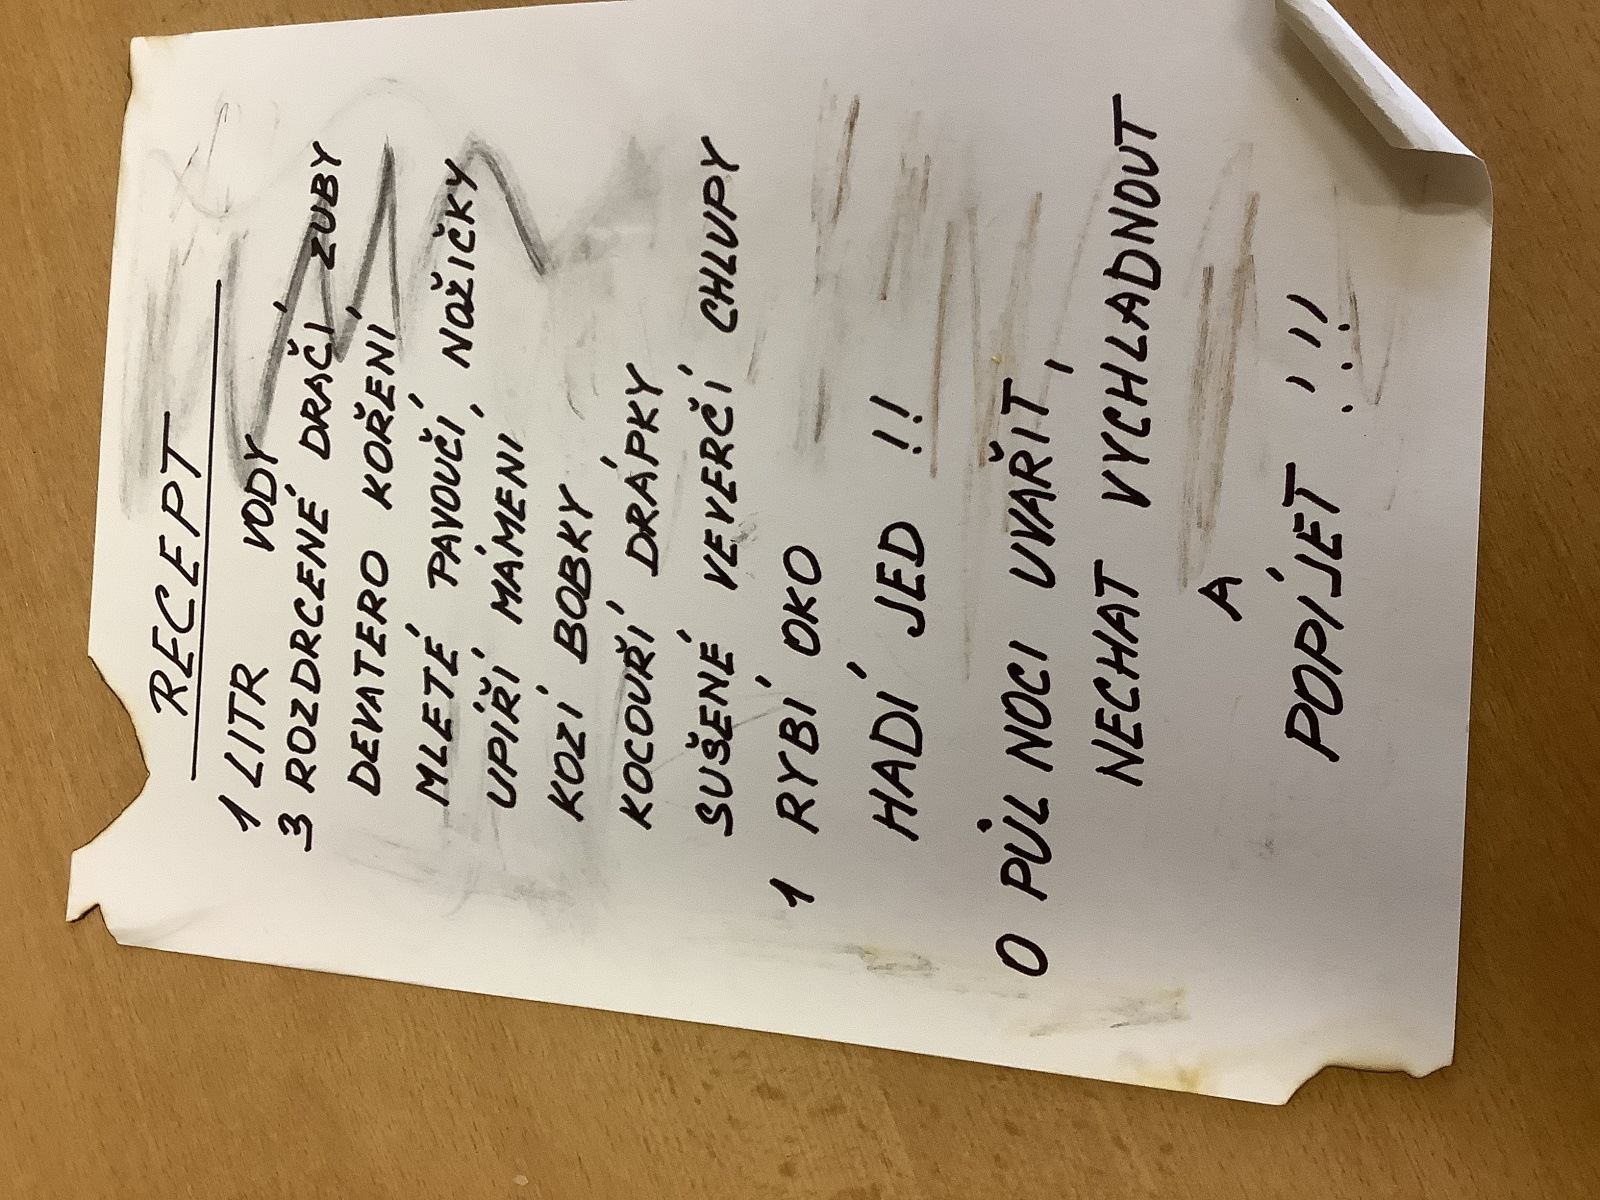 RECEPT
1 LITR VODY
3 ROZDRCENÉ DRAČÍ ZUBY
DEVATERO KOŘENÍ
MLETÉ PAVOUČÍ NOŽIČKY
UPÍŘÍ MÁMENI
KOZÍ BOBKY
KOCOUŘÍ DRÁPKY
SUŠENÉ VEVERČÍ CHLUPY
1 RYBÍ OKO
HADÍ JED !!
O PŮL NOCI UVAŘIT,
NECHAT VYCHLADNOUT
A
POPÍJET !!!